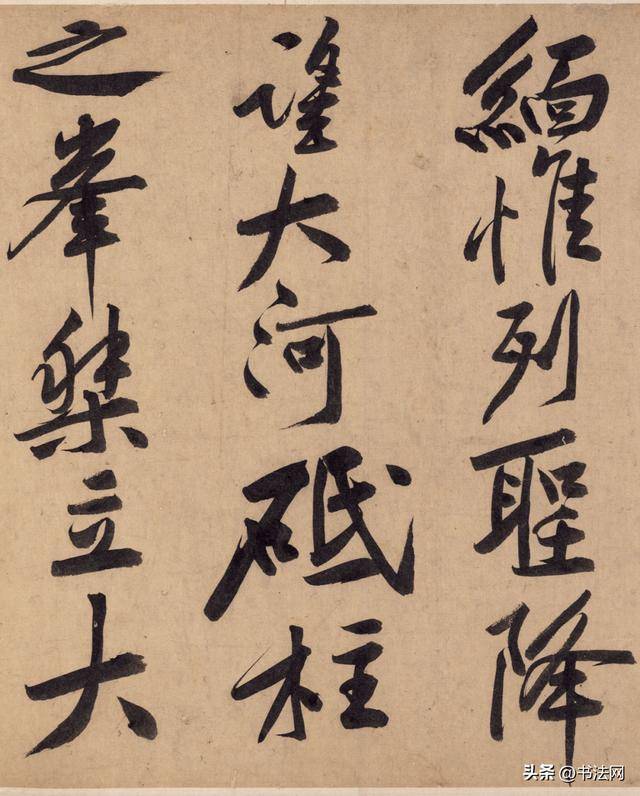 緬惟列聖降
望大河砥柱
之峯桀立大
头条 @书法网